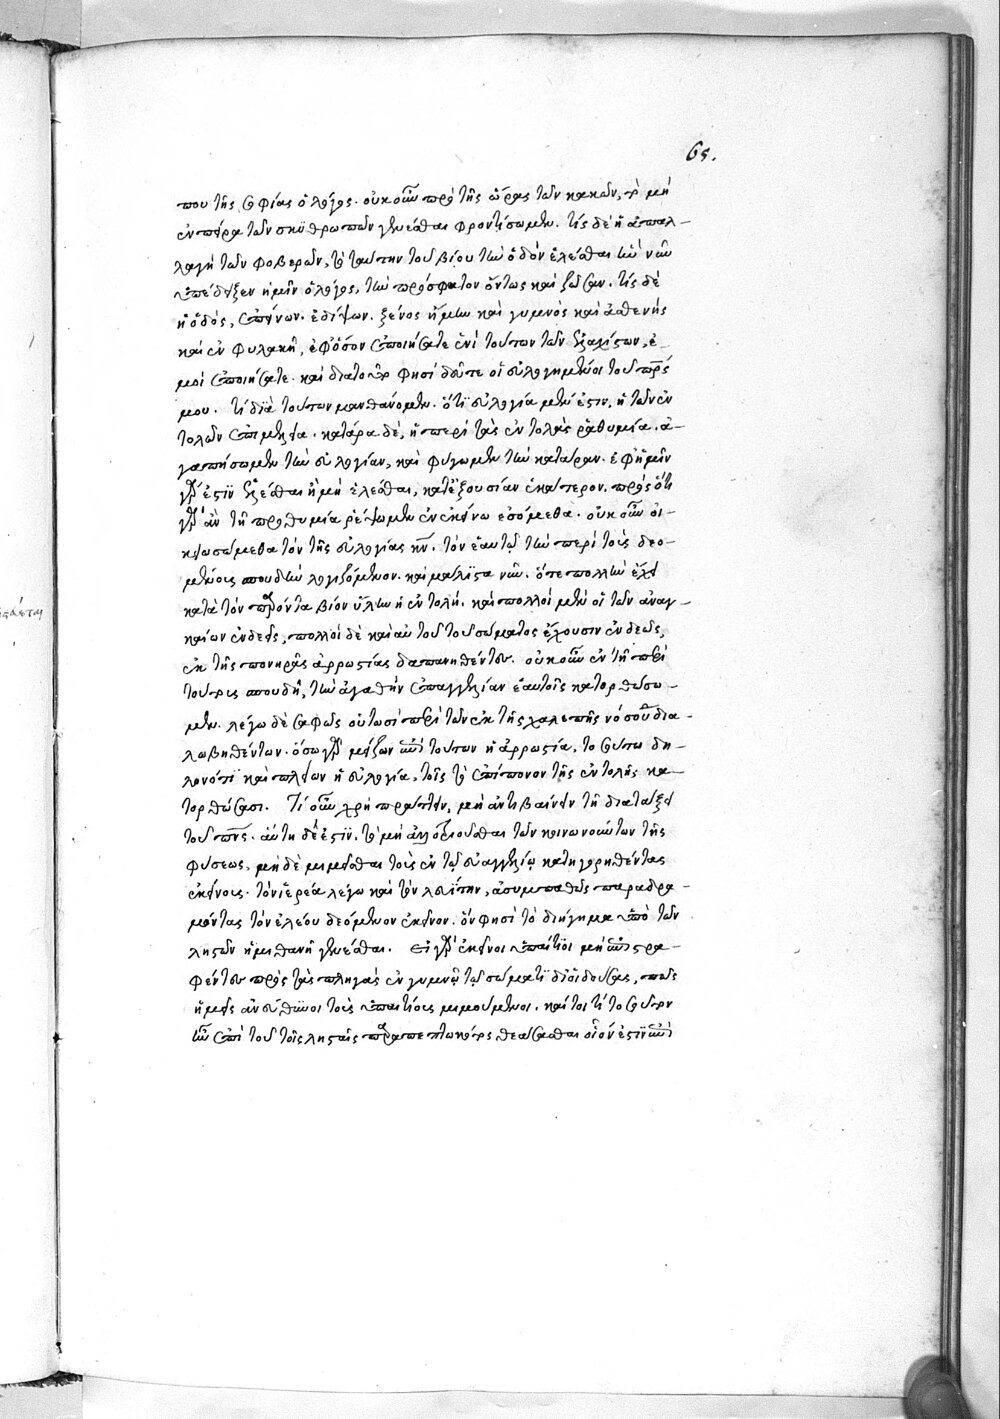 65.
που τῆς σοφίας ὁ λόγος. οὐκοῦν πρὸ τῆς ὥρας τῶν κακῶν, τὸ μὴ
ἐν πείρα τῶν σκυθρωπῶν γενέσθαι φροντίσωμεν. τίς δὲ ἡ ἀπαλ-
λαγὴ τῶν φοβερῶν, τὸ ταύτην τοῦ βίου τὴν ὁδὸν ἑλέσθαι ἣν νῦν
ὑπέδειξεν ἡμῖν ὁ λόγος, τὴν πρόσφατον ὄντως καὶ ζῶσαν. τίς δὲ
ἡ ὁδὸς, ἐπείνων. ἐδίψων. ξένος ἤμην καὶ γυμνὸς καὶ ἀσθενὴς
καὶ ἐν φυλακῆ, ἐφόσον ἐποιήσατε ἑνὶ τούτων τῶν ἐλαχίστων, ἐ-
μοὶ ἐποιήσατε. καὶ διατοῦτο φησὶ δεῦτε οἱ εὐλογημένοι τοῦ πρς
μου. τί διὰ τούτων μανθάνομεν. ὅτι εὐλογία μέν ἐστιν, ἡ τῶν ἐν
τολῶν ἐπιμέλεια. κατάρα δὲ, ἡ περὶ τὰς ἐντολὰς ῥαθυμία. ἀ-
γαπήσωμεν τὴν εὐλογίαν, καὶ φύγωμεν τὴν κατάραν. ἐφημῖν
γάρ ἐστιν ἑλέσθαι ἢ μὴ ἑλέσθαι, κατεξουσίαν ἑκάτερον. πρὸς ὅτι
γὰρ ἂν τῆ προθυμία ῥέψωμεν ἐν ἐκείνω ἐσόμεθα. οὐκοῦν οἰ-
κειωσώμεθα τὸν τῆς εὐλογίας κν. τὸν ἑαυτῷ τὴν περὶ τοὺς δεο-
μένους σπουδὴν λογιζόμενον. καὶ μάλιστα νῦν. ὅτε πολλὴν ἔχει
κατὰ τὸν παρόντα βίον ὕλην ἡ ἐντολή. καὶ πολλοὶ μὲν οἱ τῶν ἀναγ-
καίων ἐνδεεῖς, πολλοὶ δὲ καὶ αὐτοῦ τοῦ σώματος ἔχουσιν ἐνδεῶς,
ἐκ τῆς πονηρᾶς ἀρρωστίας δαπανηθέντες. οὐκοῦν ἐν τῆ περὶ
τούτους σπουδῆ, τὴν ἀγαθὴν ἐπαγγελίαν ἑαυτοῖς κατορθώσω-
μεν. λέγω δὲ σαφῶς οὑτωσὶ περὶ τῶν ἐκ τῆς χαλεπῆς νόσου δια-
λωβηθέντων. ὅσω γὰρ μείζων ἐπὶ τούτων ἡ ἀρρωστία, τοσούτω δη-
λονότι καὶ πλείων ἡ εὐλογία, τοῖς τὸ ἐπίπονον τῆς ἐντολῆς κα-
τορθώσασι. Τί οὖν χρὴ πράττειν, μὴ ἀντιβαίνειν τῆ διατάξει
τοῦ πνς. αὕτη δέ ἐστιν, τὸ μὴ ἀλλοτριοῦσθαι τῶν κοινωνούντων τῆς
φύσεως, μηδὲ μιμεῖσθαι τοὺς ἐν τῷ εὐαγγελίῳ κατηγορηθέντας
ἐκείνους. τὸν ἱερέα λέγω καὶ τὸν λευίτην, ἀσυμπαθῶς παραδρα-
μόντας τὸν ἐλέου δεόμενον ἐκεῖνον. ὅν φησὶ τὸ διήγημα ὑπὸ τῶν
ληστῶν ἡμιθανῆ γενέσθαι. Εἰ γὰρ ἐκεῖνοι ὑπαίτιοι μὴ ἐπιστρα-
φέντες πρὸς τὰς πληγὰς ἐν γυμνῷ τῷ σώματι διοιδούσας, πῶς
ἡμεῖς ἀνεύθυνοι τοὺς ὑπαιτίους μιμούμενοι. καίτοι τί τοσοῦτον
ἦν ἐπὶ τοῦ τοῖς λησταῖς παραπεπτωκότος θεάσασθαι οἷόν ἐστιν ἐπὶ